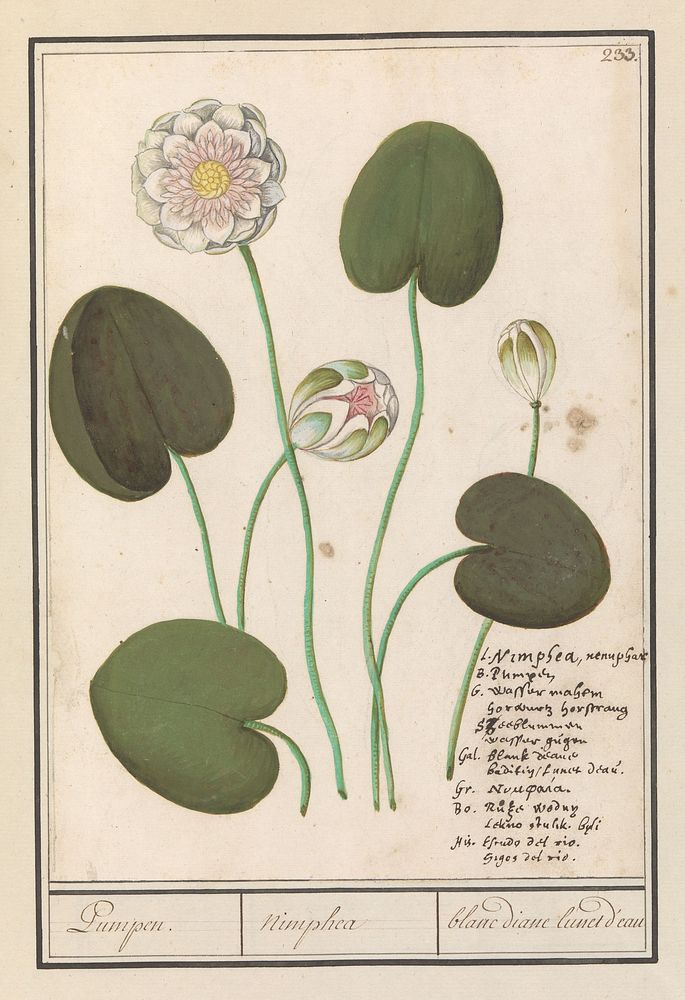 233.
L. Nimphea, nenuphare
B. Pumpen
G. Wasser mahem
horwurtz horstrang
Seeblummen
wasser gugen
Gal. blank deaue
baditin / lunet d'eau.
Gr. Νυμφαία.
Bo. Růže wodny
Lekno stulik. byli
His. Escudo del rio.
Higos del rio.
Pumpen.
Nimphea
blanc diane lunet d'eau